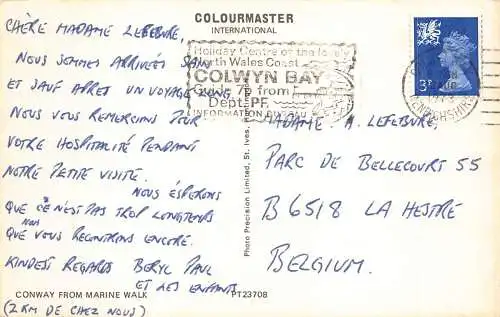 COLOURMASTER
INTERNATIONAL
CHÈRE MADAME LEFEBURE,
NOUS SOMMES ARRIVÉES SAIN
ET SAUF APRES UN VOYAGE LONG.
NOUS VOUS REMERCIONS POUR
VOTRE HOSPITALITÉ PENDANT
NOTRE PETITE VISITE.
NOUS ÉSPERONS
QUE CE N'EST PAS TROP LONGTEMPS
QUE NOUS VOUS RECONTRONS ENCORE.
KINDEST REGARDS BERYL PAUL
ET LES ENFANTS
CONWAY FROM MARINE WALK
PT23708
(2 KM DE CHEZ NOUS)
Photo Precision Limited, St. Ives,
Holiday Centre of the lovely
North Wales Coast
COLWYN BAY
Guide 7p from
Dept. PF.
INFORMATION
3P
DENBIGHSHIRE
MADAME A. LEFEBURE,
PARC DE BELLECOURT 55
B6518 LA HESTRE
BELGIUM.